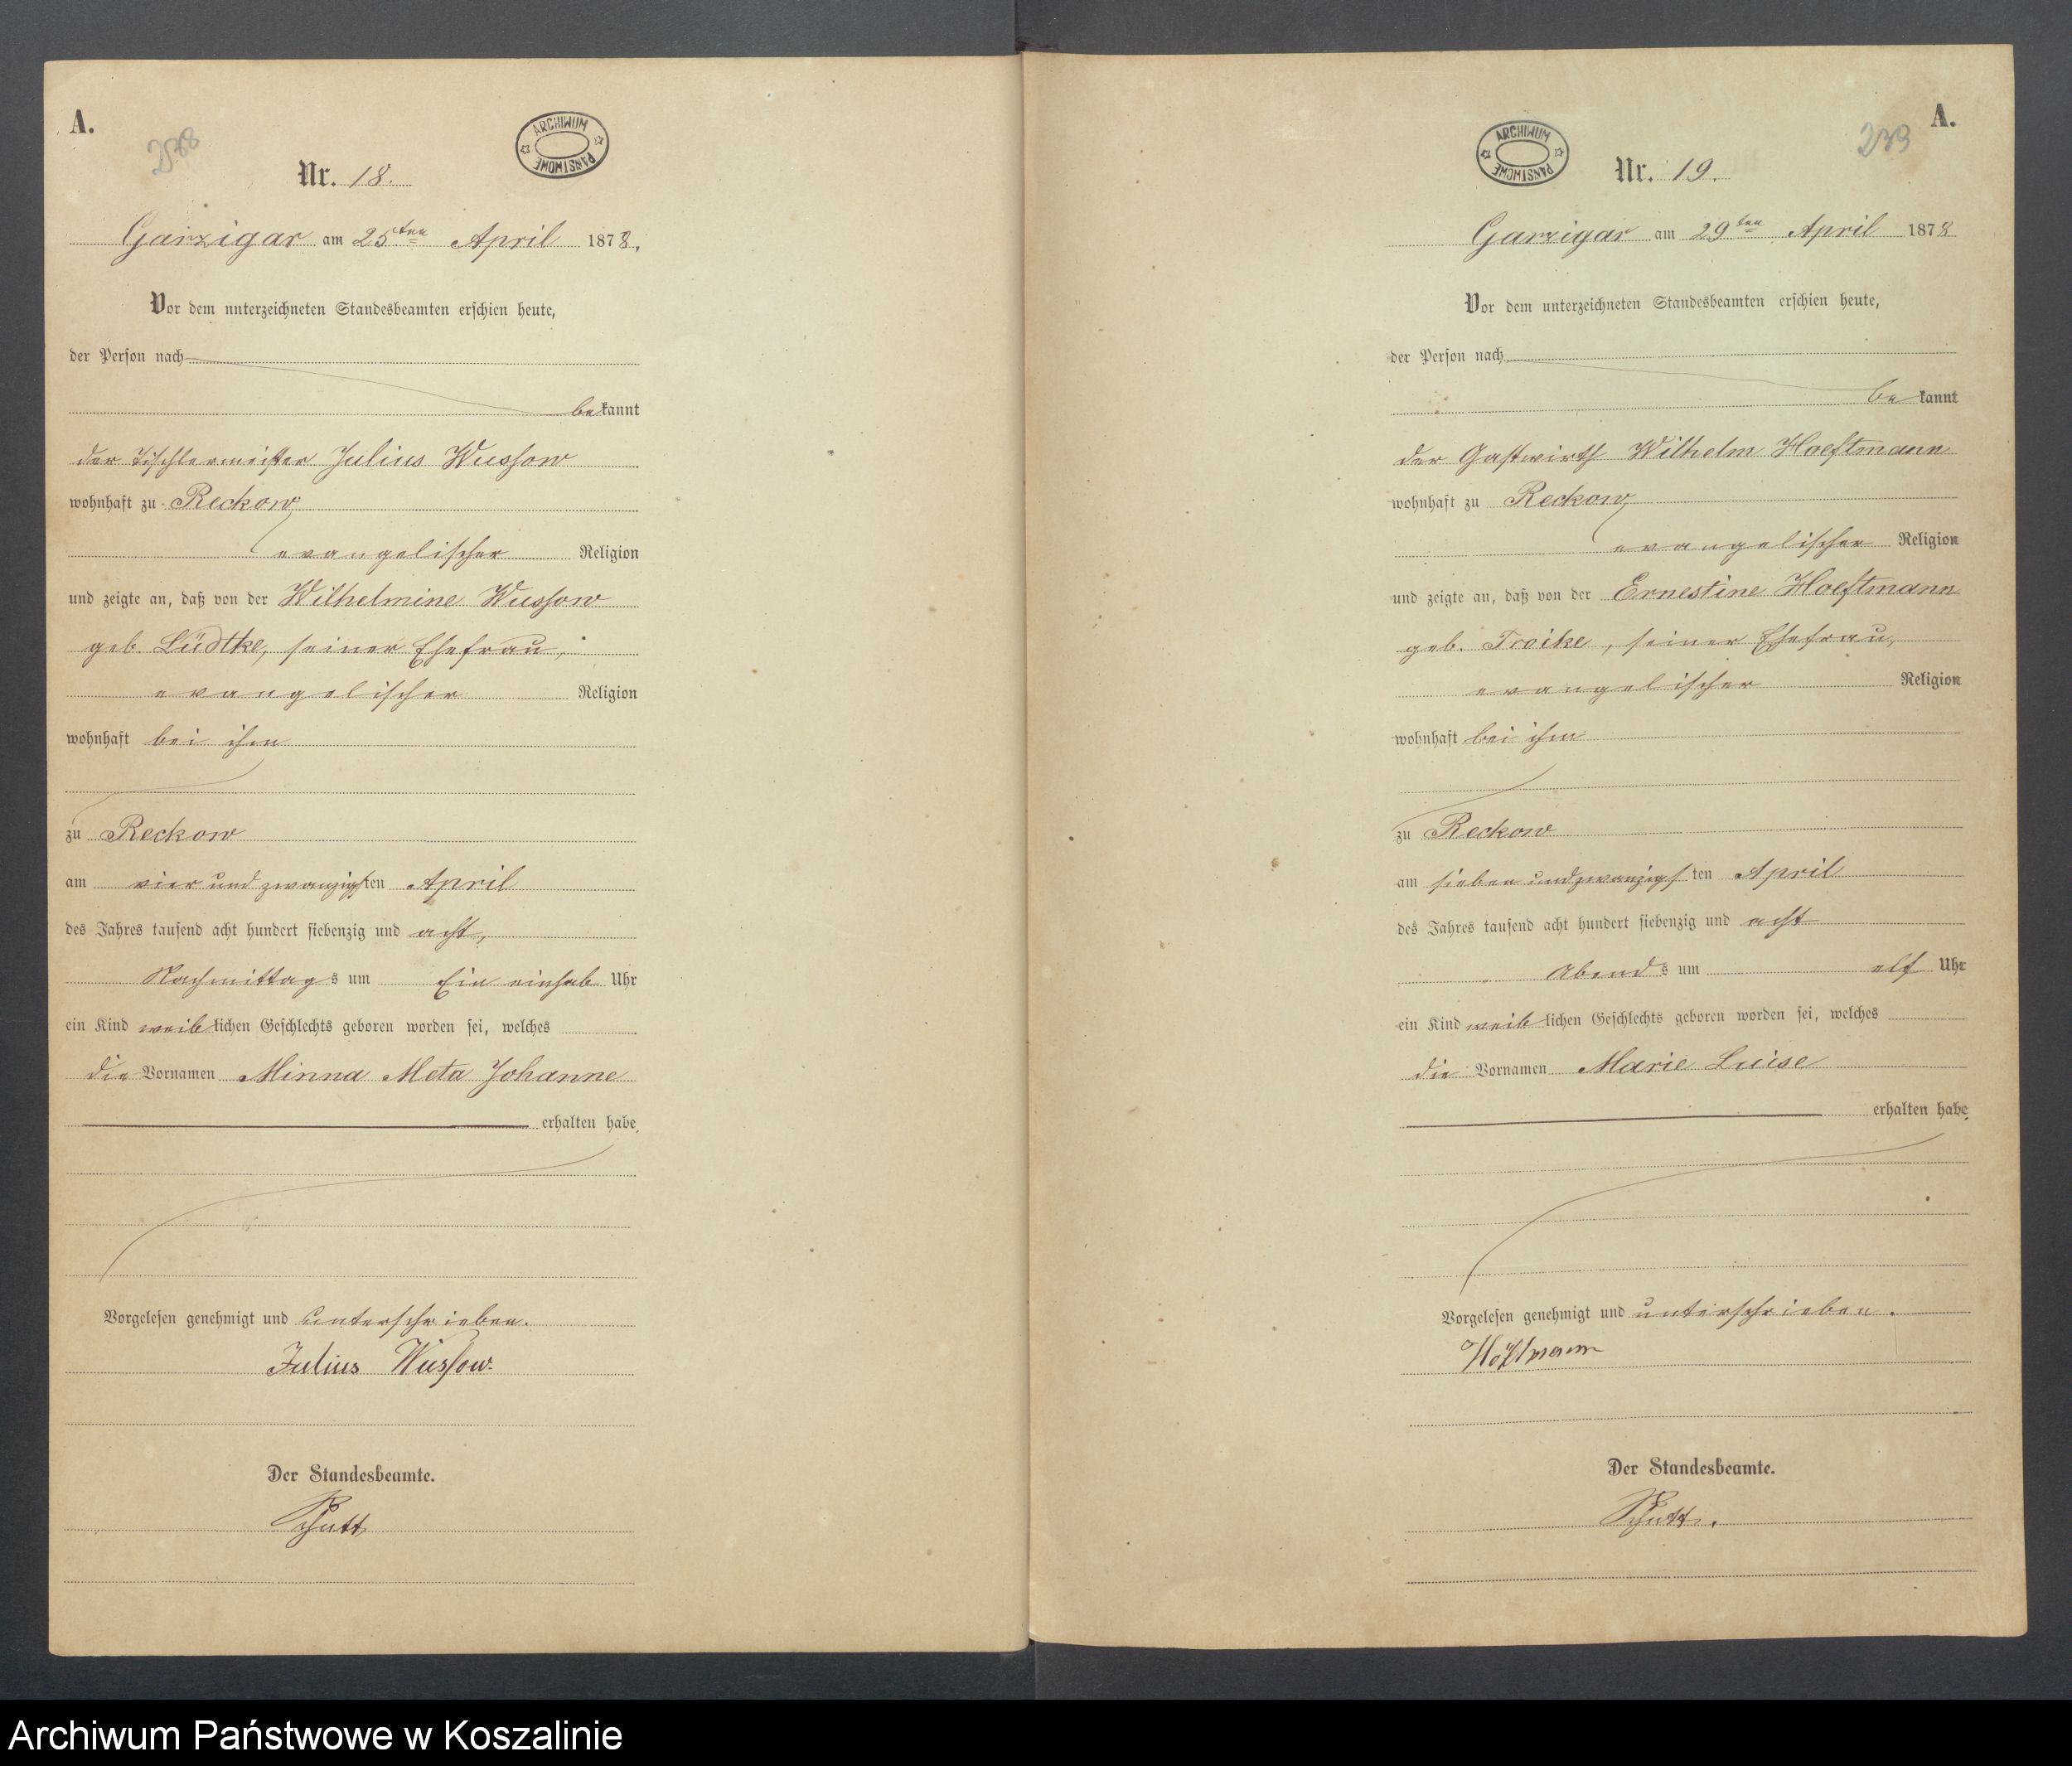 A.
238
ARCHIWUM PAŃSTWOWE
Nr. 18.
Garzigar am 25ten April 1878.
Vor dem unterzeichneten Standesbeamten erschien heute,
der Person nach
bekannt
der Tischlermeister Julius Wussow
wohnhaft zu Reckow
evangelischer Religion
und zeigte an, daß von der Wilhelmine Wussow
geb. Lüdtke, seiner Ehefrau,
evangelischer Religion
wohnhaft bei ihm
zu Reckow
am vier und zwanzigsten April
des Jahres tausend acht hundert siebenzig und acht,
Nachmittags um Ein einhalb Uhr
ein Kind weiblichen Geschlechts geboren worden sei, welches
die Vornamen Minna Meta Johanne
erhalten habe.
Vorgelesen genehmigt und unterschrieben.
Julius Wussow.
Der Standesbeamte.
Schutt
A.
239
ARCHIWUM PAŃSTWOWE
Nr. 19.
Garzigar am 29ten April 1878
Vor dem unterzeichneten Standesbeamten erschien heute,
der Person nach
bekannt
der Gastwirth Wilhelm Hoeftmann
wohnhaft zu Reckow
evangelischer Religion
und zeigte an, daß von der Ernestine Hoeftmann
geb. Troike, seiner Ehefrau,
evangelischer Religion
wohnhaft bei ihm
zu Reckow
am sieben und zwanzigsten April
des Jahres tausend acht hundert siebenzig und acht
Abends um elf Uhr
ein Kind weiblichen Geschlechts geboren worden sei, welches
die Vornamen Marie Luise
erhalten habe.
Vorgelesen genehmigt und unterschrieben.
Höftmann
Der Standesbeamte.
Schutt.
Archiwum Państwowe w Koszalinie